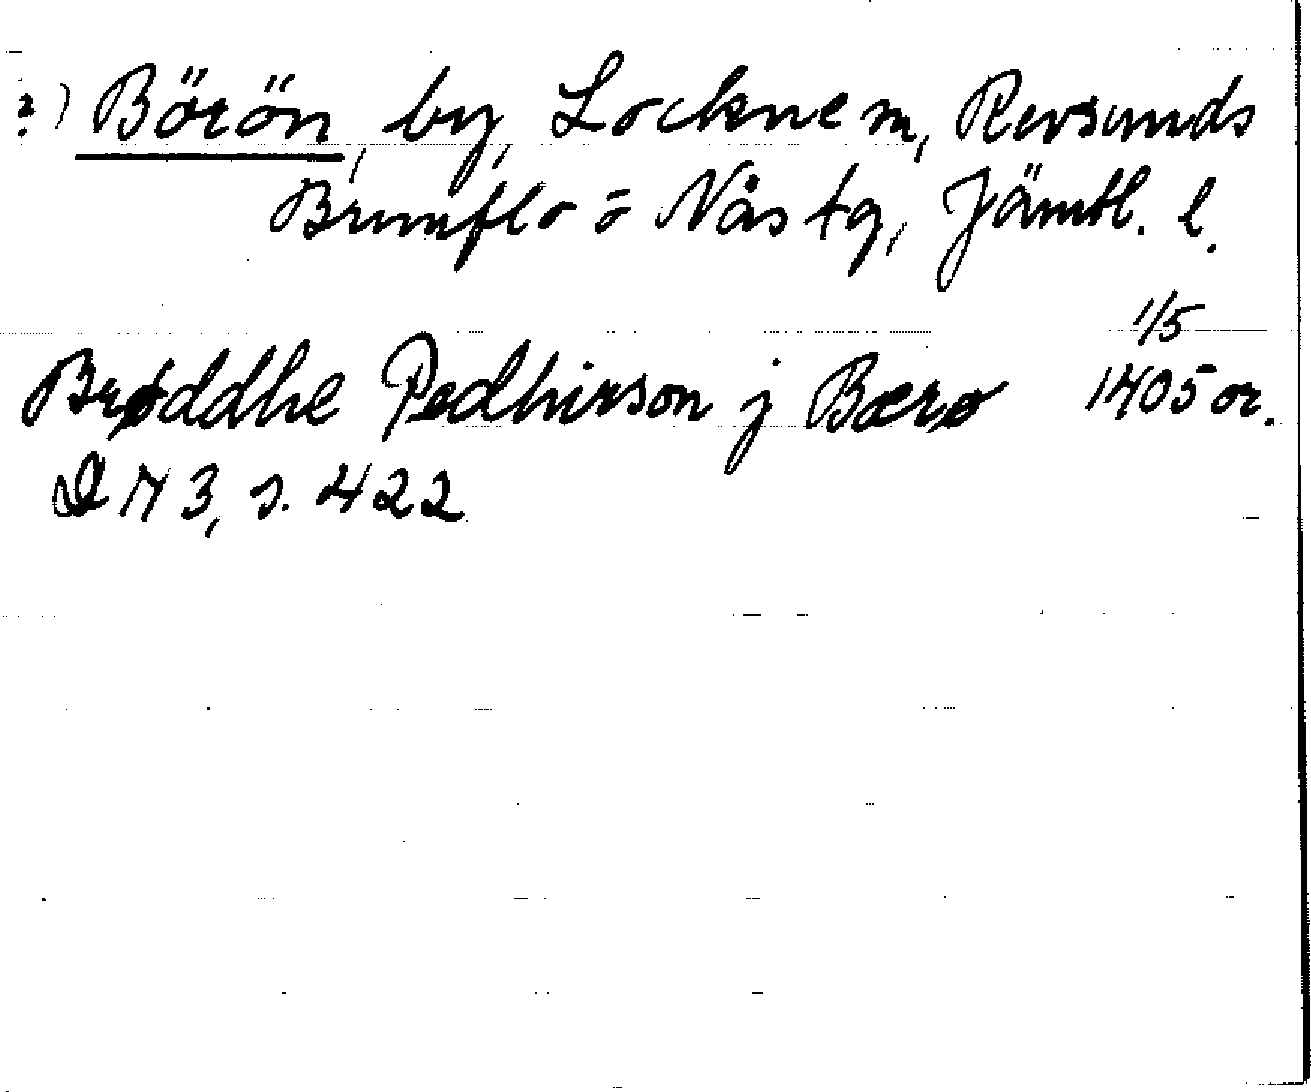 ?) Börön, by, Lockne sn, Revsunds
Brunflo o Näs tg, Jämtl. l.
1/5
Brøddhe Pedhirson j Bærø 1405 or.
DN 3, s. 422